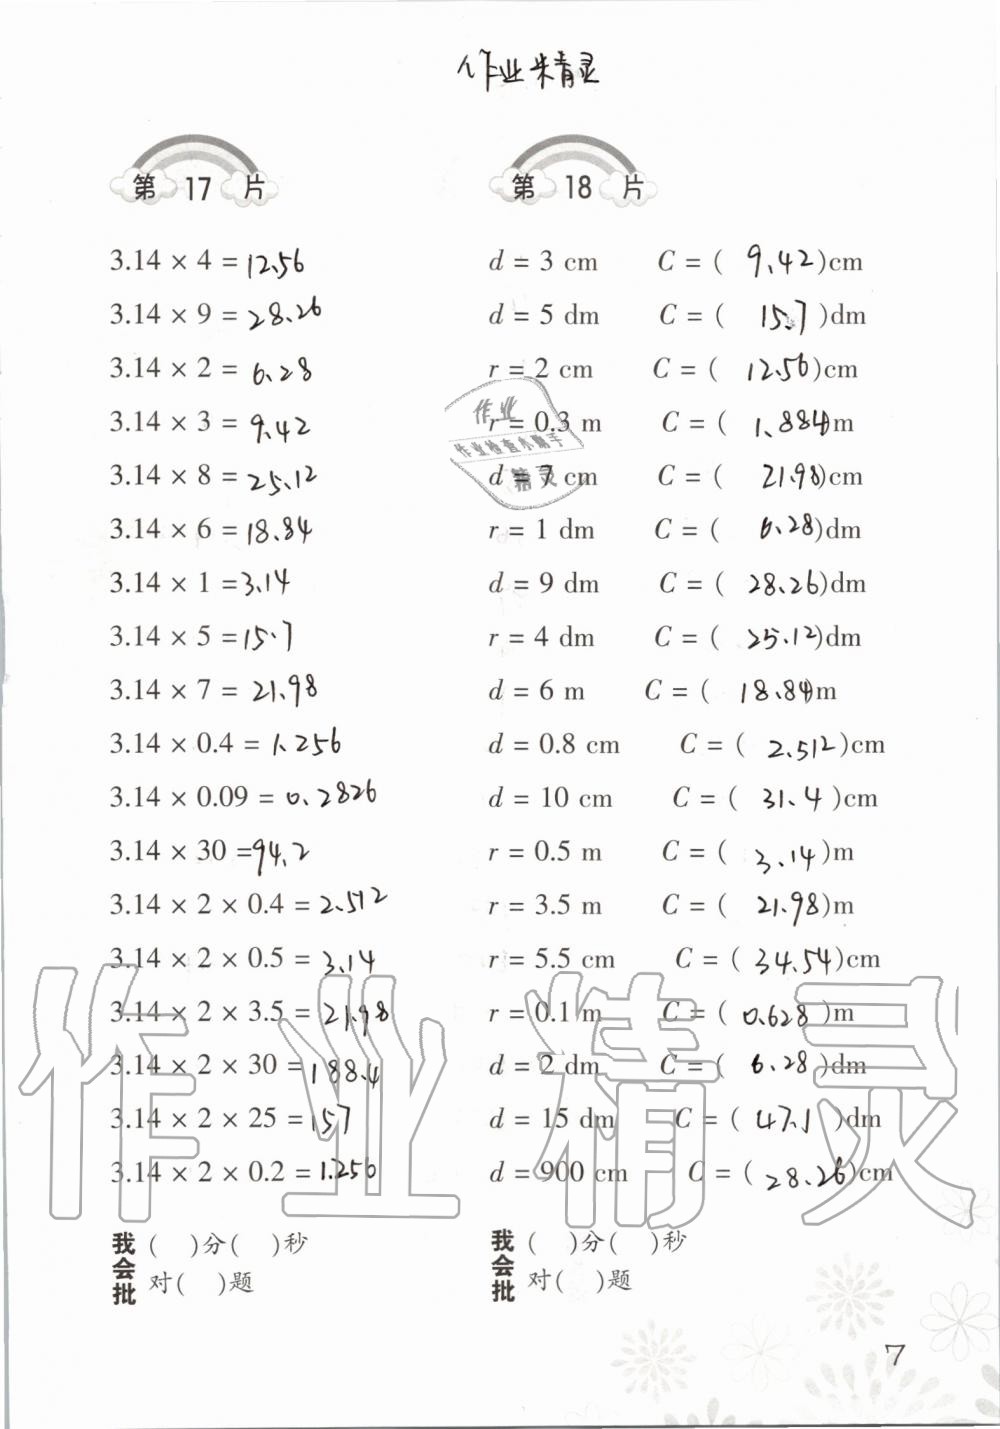 作业精灵
第 17 片
3.14 × 4 = 12.56
3.14 × 9 = 28.26
3.14 × 2 = 6.28
3.14 × 3 = 9.42
3.14 × 8 = 25.12
3.14 × 6 = 18.84
3.14 × 1 = 3.14
3.14 × 5 = 15.7
3.14 × 7 = 21.98
3.14 × 0.4 = 1.256
3.14 × 0.09 = 0.2826
3.14 × 30 = 94.2
3.14 × 2 × 0.4 = 2.512
3.14 × 2 × 0.5 = 3.14
3.14 × 2 × 3.5 = 21.98
3.14 × 2 × 30 = 188.4
3.14 × 2 × 25 = 157
3.14 × 2 × 0.2 = 1.256
我会批
( )分( )秒
对( )题
第 18 片
d = 3 cm C = ( 9.42 )cm
d = 5 dm C = ( 15.7 )dm
r = 2 cm C = ( 12.56 )cm
r = 0.3 m C = ( 1.884 )m
d = 7 cm C = ( 21.98 )cm
r = 1 dm C = ( 6.28 )dm
d = 9 dm C = ( 28.26 )dm
r = 4 dm C = ( 25.12 )dm
d = 6 m C = ( 18.84 )m
d = 0.8 cm C = ( 2.512 )cm
d = 10 cm C = ( 31.4 )cm
r = 0.5 m C = ( 3.14 )m
r = 3.5 m C = ( 21.98 )m
r = 5.5 cm C = ( 34.54 )cm
r = 0.1 m C = ( 0.628 )m
d = 2 dm C = ( 6.28 )dm
d = 15 dm C = ( 47.1 )dm
d = 900 cm C = ( 28.26 )cm
我会批
( )分( )秒
对( )题
作业
作业检查小助手
精灵
作业精灵
7